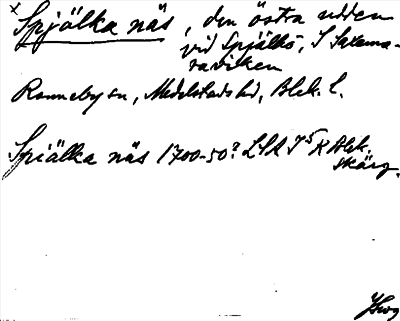 x Spjälka näs, den östra udden
vid Spjälkö, S Saxema-
raviken
Ronneby sn, Medelstads hd, Blek. l.
Spiälka näs 1700-50? LSA I 5 K Blek.
skärg.